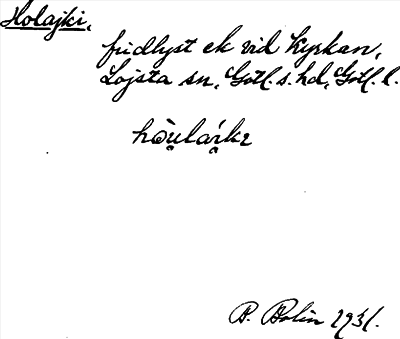 Holajki,
fridlyst ek vid kyrkan,
Lojsta sn, Gotl. s. hd, Gotl. l.
B. Bolin 1931.